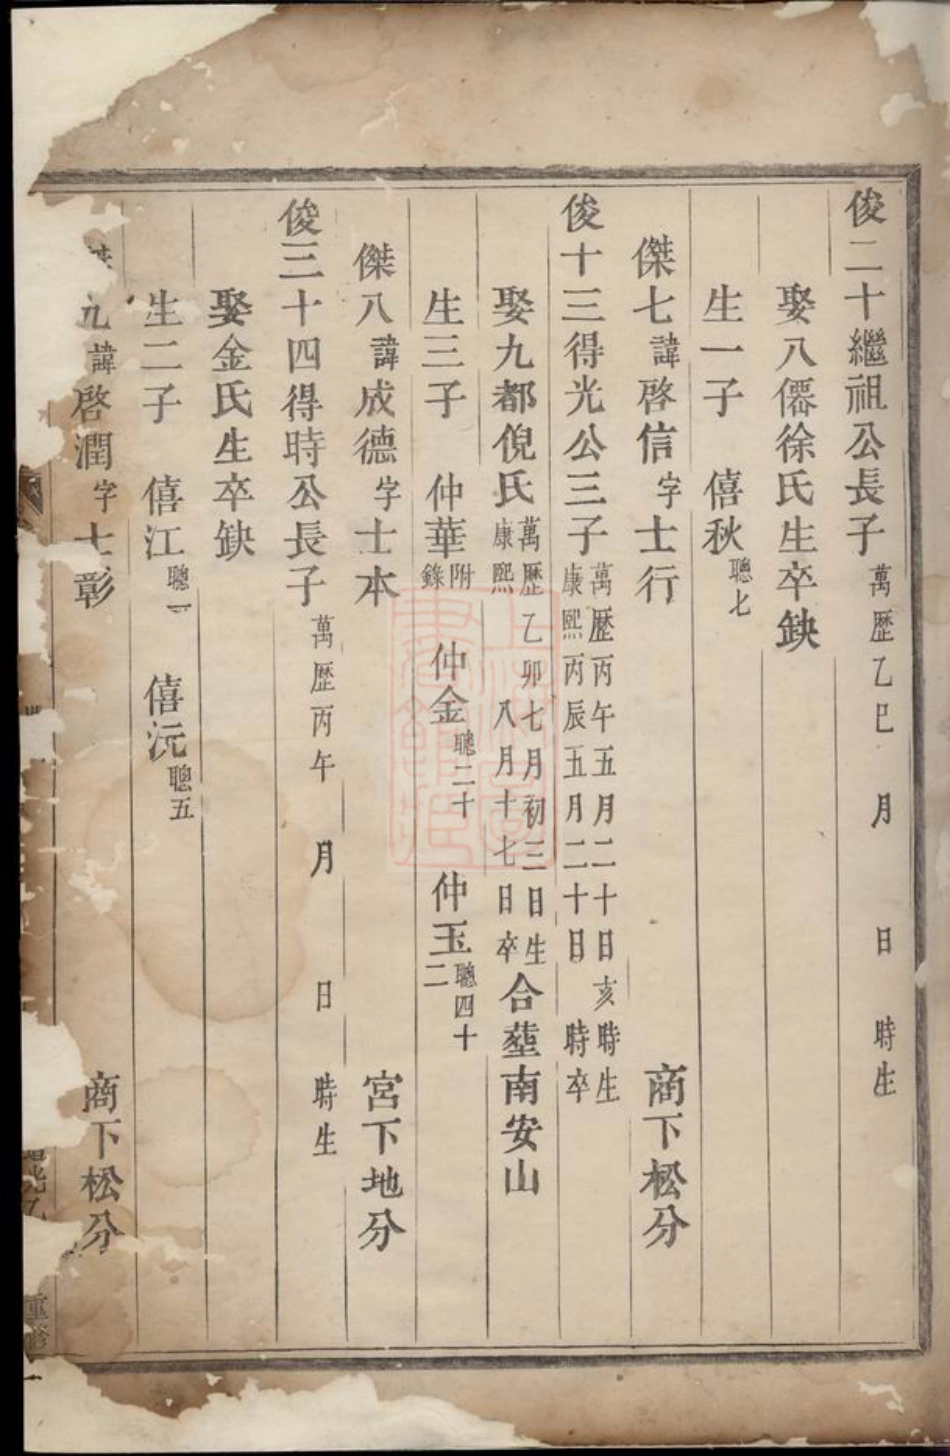 俊二十繼祖公長子 萬歴乙巳 月 日 時生
娶八僊徐氏生卒缺
生一子 僖秋 聰七
傑七 諱 啓信 字 士行 商下松分
俊十三得光公三子 萬歴丙午五月二十日亥時生 康熙丙辰五月二十日 時卒
娶九都倪氏 萬歴乙卯七月初三日生 康熙 八月十七日卒 合塟南安山
生三子 仲華 附錄 仲金 聰二十 仲玉 聰四十二
傑八 諱 成德 字 士本 宮下地分
俊三十四得時公長子 萬歴丙午 月 日 時生
娶金氏生卒缺
生二子 僖江 聰一 僖沅 聰五
九 諱 啓潤 字 士彰 商下松分
重修